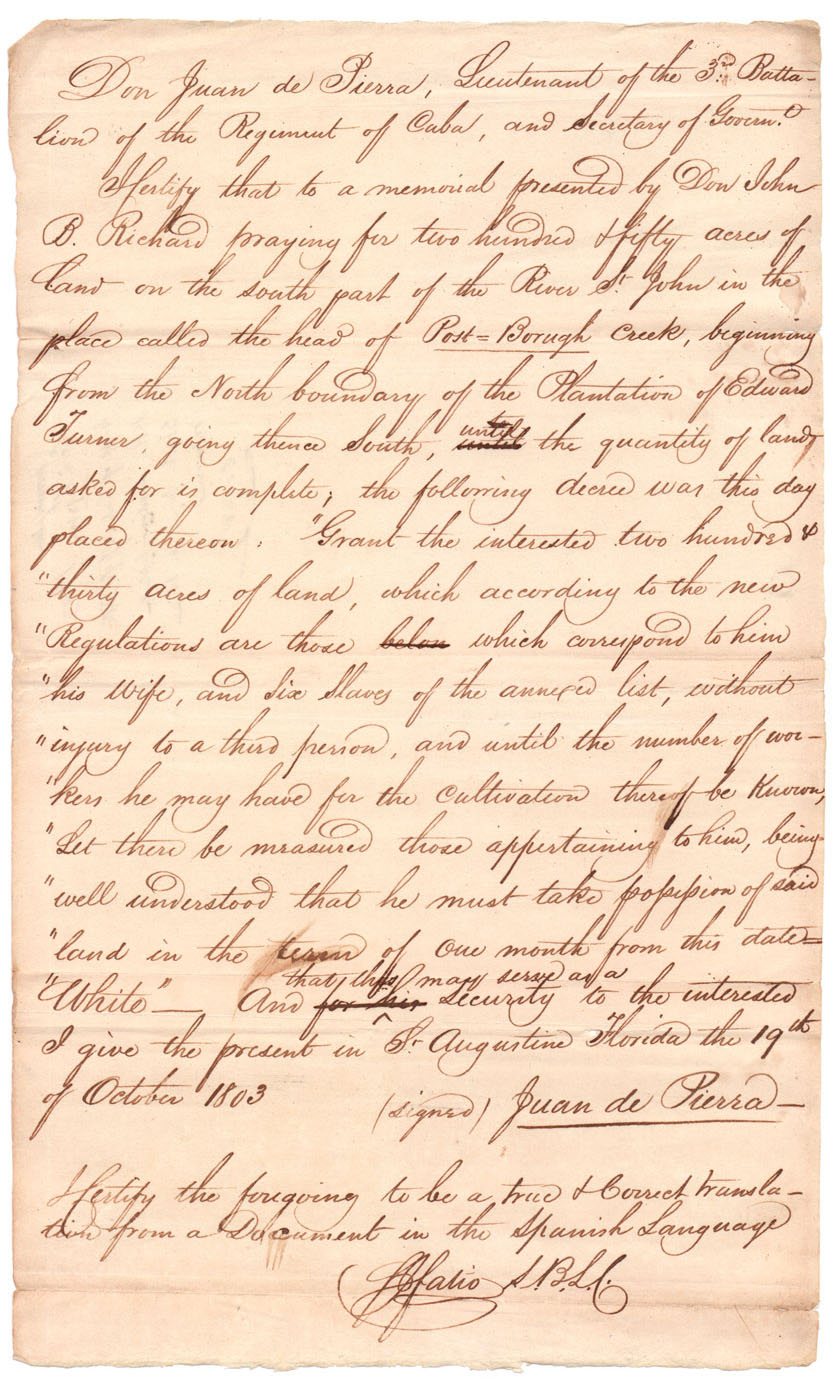 Don Juan de Pierra, Lieutenant of the 3rd Batta-
lion of the Regiment of Cuba, and Secretary of Governt.
I Certify that to a memorial presented by Don John
B. Richard praying for two hundred & fifty acres of
land on the south part of the River St. John in the
place called the head of Post=Borugh Creek, beginning
from the North boundary of the Plantation of Edward
Turner, going thence South, until the quantity of land
asked for is complete; the following decree was this day
placed thereon: "Grant the interested two hundred &
"thirty acres of land, which according to the new
"Regulations are those below which correspond to him
"his Wife, and Six Slaves of the annexed list, without
"injury to a third person, and until the number of wor-
"kers he may have for the cultivation thereof be Known,
"Let there be measured those appertaining to him, being
"well understood that he must take possession of said
"land in the term of one month from this date=
"White"— And for his that this may serve as a security to the interested
I give the present in St. Augustine Florida the 19th
of October 1803
(signed) Juan de Pierra—
I Certify the foregoing to be a true & Correct transla-
tion from a Document in the Spanish Language
Fatio S.B.L.C.